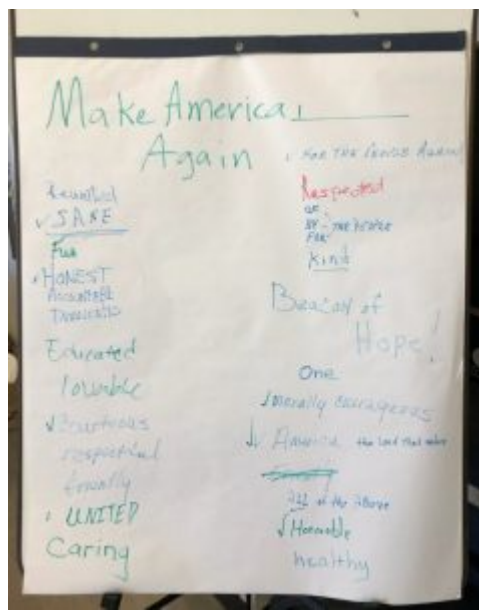 Make America
Again
Beautiful
SANE
Fun
HONEST
Educated
lovable
Courteous
respectful
friendly
UNITED
Caring
FOR THE Again
Respected
OF
BY - THE PEOPLE
FOR
Kind
Beacon of
Hope!
One
morally courageous
America the land that
All of the Above
Honorable
healthy